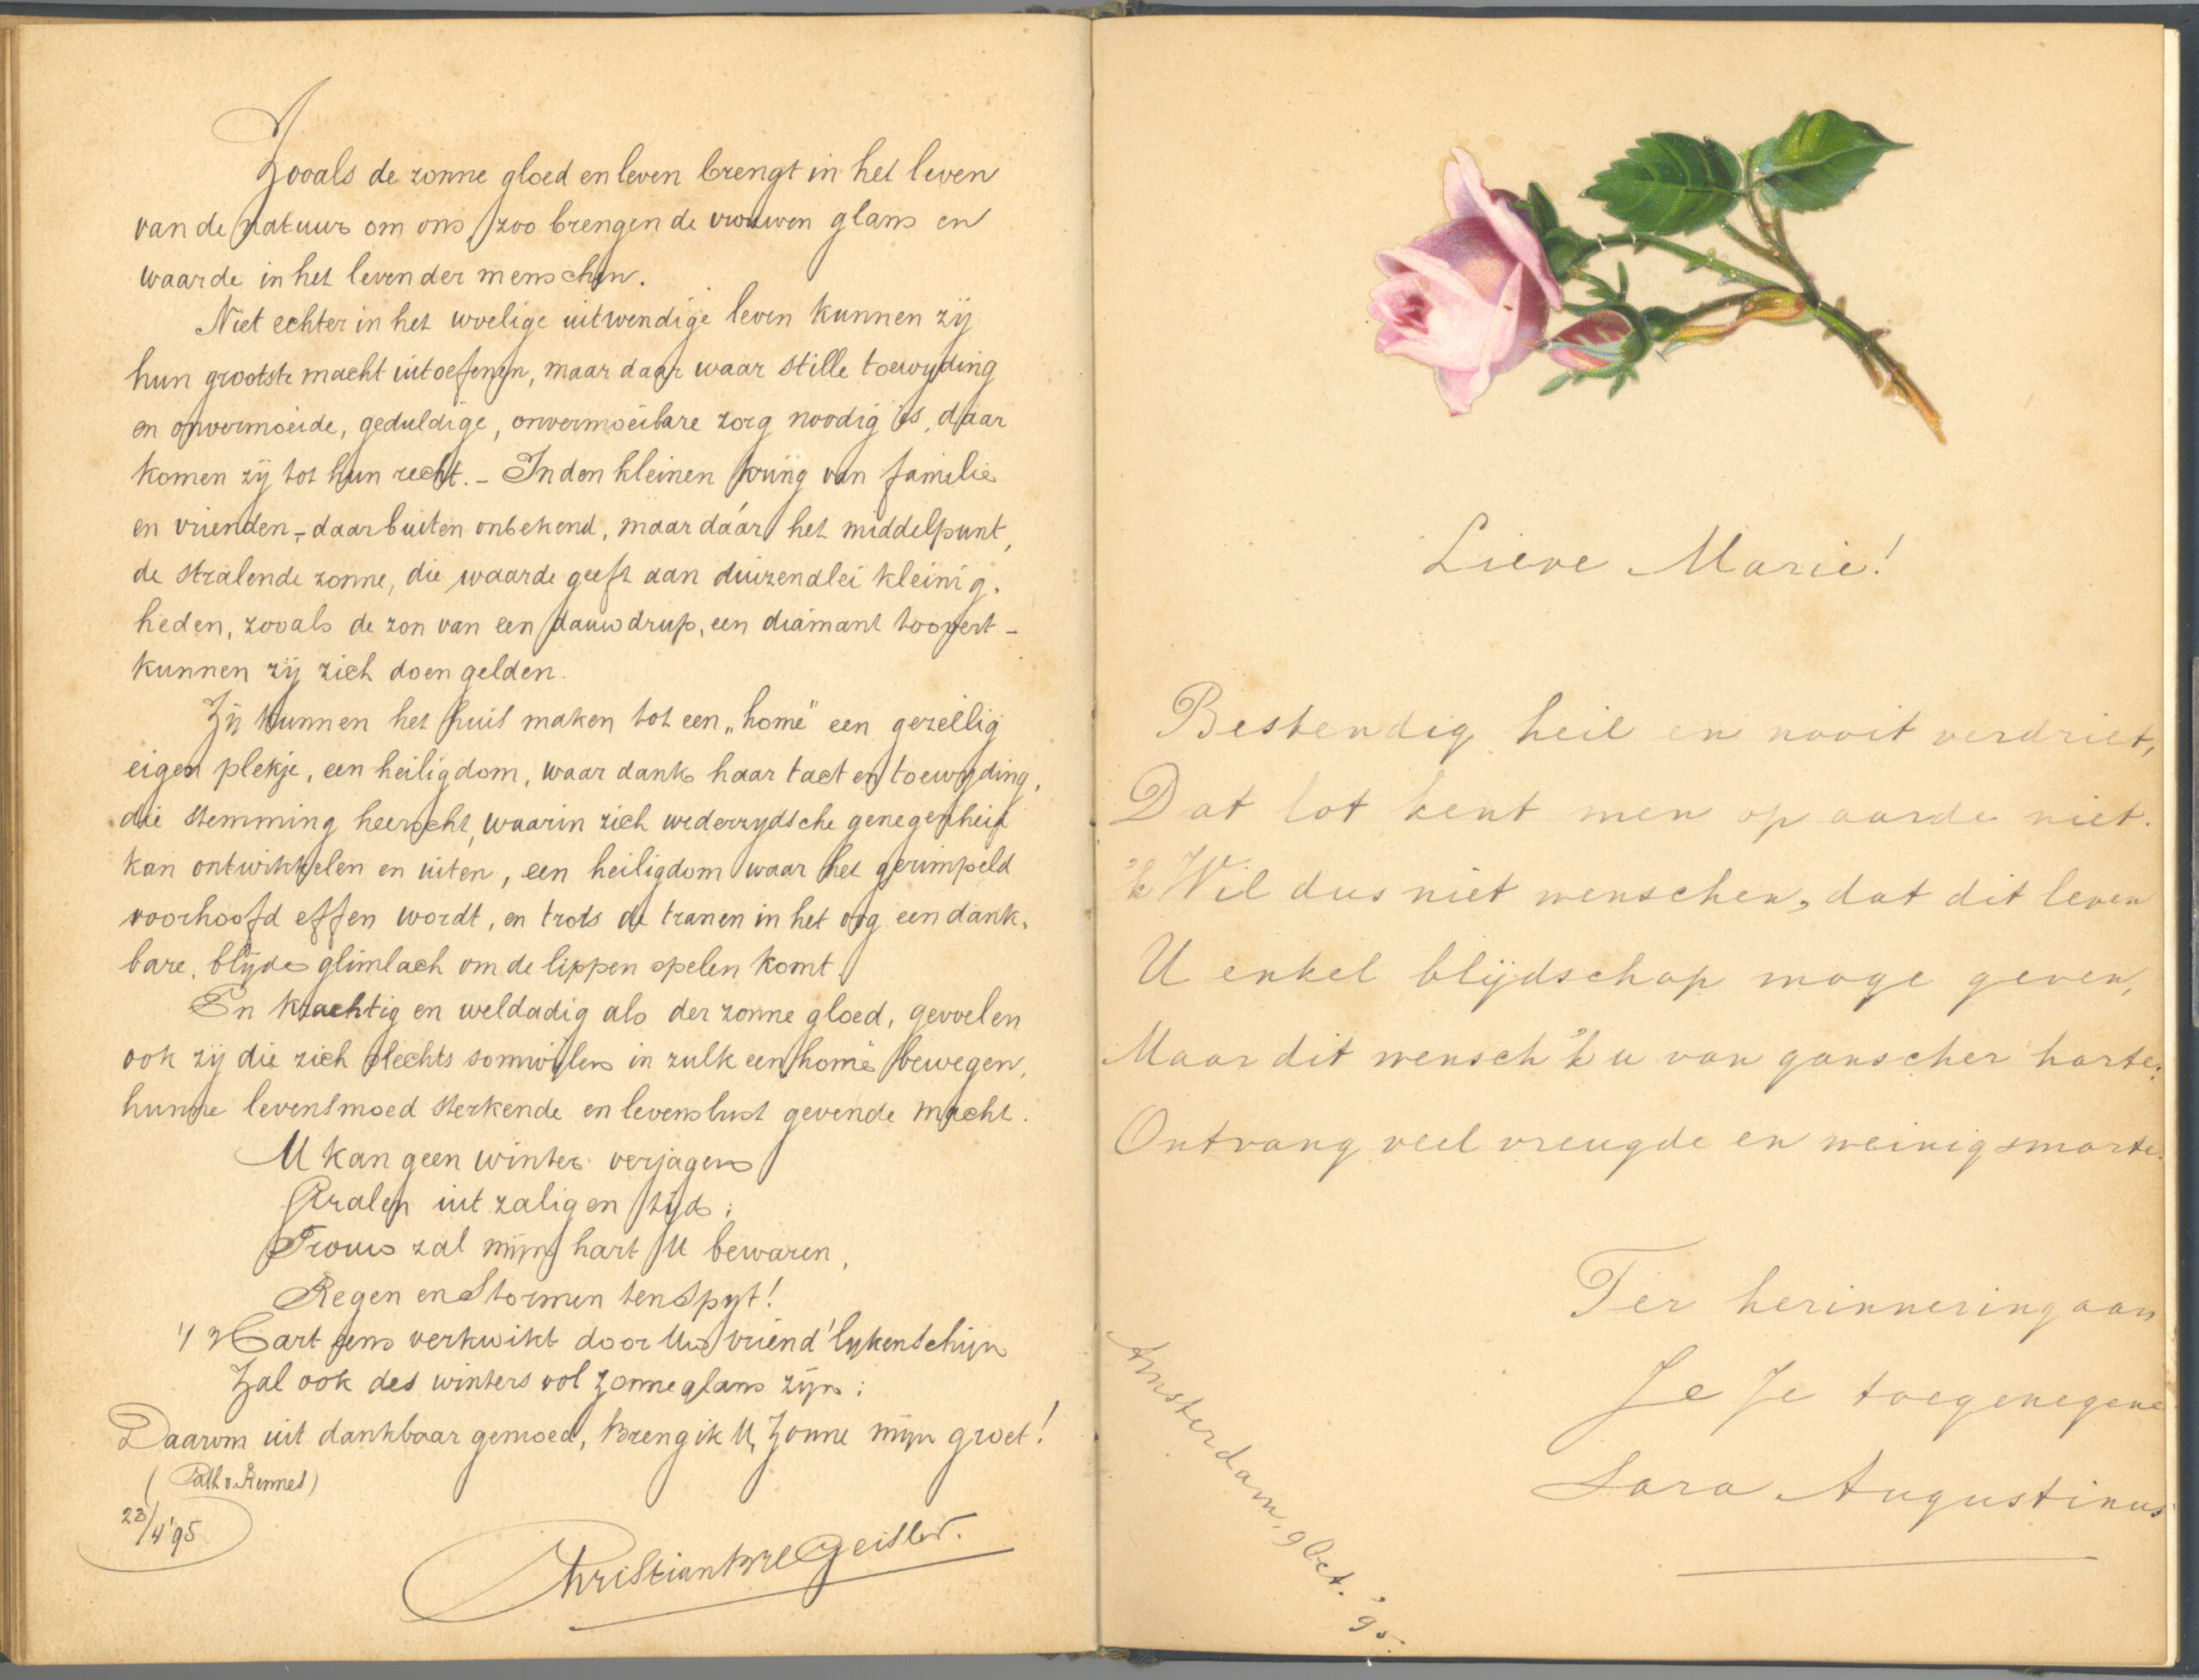 Zooals de zonne gloed en leven brengt in het leven
van de natuur om ons, zoo brengen de vrouwen glans en
waarde in het leven der menschen.
Niet echter in het woelige uitwendige leven kunnen zij
hun grootste macht uitoefenen, maar daar waar stille toewijding
en onvermoeide, geduldige, onvermoeibare zorg noodig is, daar
komen zij tot hun recht. - In den kleinen kring van familie
en vrienden, - daarbuiten onbekend, maar dáár het middelpunt,
de stralende zonne, die waarde geeft aan duizendlei kleinig-
heden, zooals de zon van een dauwdrup, een diamant toovert -
kunnen zij zich doen gelden.
Zij kunnen het huis maken tot een „home" een gezellig
eigen plekje, een heiligdom, waar dank haar tact en toewijding,
die stemming heerscht, waarin zich wederzijdsche genegenheid
kan ontwikkelen en uiten, een heiligdom waar het gerimpeld
voorhoofd effen wordt, en trots de tranen in het oog een dank-
bare, blijde glimlach om de lippen spelen komt.
En krachtig en weldadig als der zonne gloed, gevoelen
ook zij die zich slechts somwijlen in zulk een home bewegen,
hunne levensmoed sterkende en levenslust gevende macht.
U kan geen winter verjagen
Stralen uit zaligen tijd;
Trouw zal mijn hart U bewaren,
Regen en Stormen ten Spijt!
't Hart eens verkwikt door Uw vriend'lijken Schijn
Zal ook des winters vol Zonneglans zijn;
Daarom uit dankbaar gemoed, breng ik U, Zonne mijn groet!
(Cath v. Rennes)
23/4 '95
Christian Geisler.
Lieve Marie!
Bestendig heil en nooit verdriet,
Dat lot kent men op aarde niet.
'k Wil dus niet wenschen, dat dit leven
U enkel blijdschap moge geven,
Maar dit wensch 'k u van ganscher harte:
Ontvang veel vreugde en weinig smarte.
Ter herinnering aan
Je Je toegenegene
Sara Augustinus
Amsterdam, 9 Oct. '95.